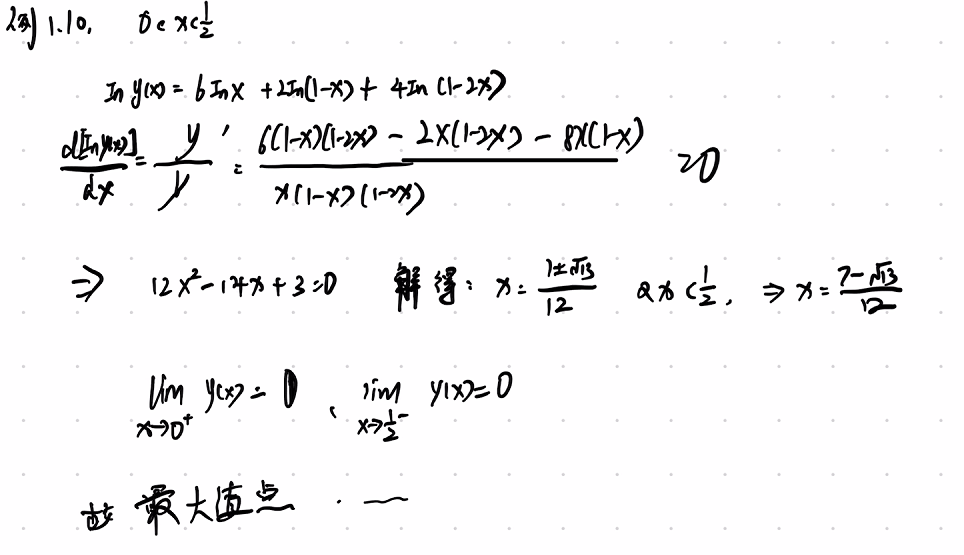 例1.10. 0<x<1/2
ln y(x) = 6 ln x + 2ln(1-x) + 4ln(1-2x)
d[ln y(x)]/dx = y'/y = (6(1-x)(1-2x) - 2x(1-2x) - 8x(1-x))/(x(1-x)(1-2x)) = 0
⇒ 12x² - 14x + 3 = 0 解得: x = (7±√13)/12 0<x<1/2, ⇒ x = (7-√13)/12
lim x→0⁺ y(x) = 0, lim x→1/2⁻ y(x) = 0
故 最大值点 . —